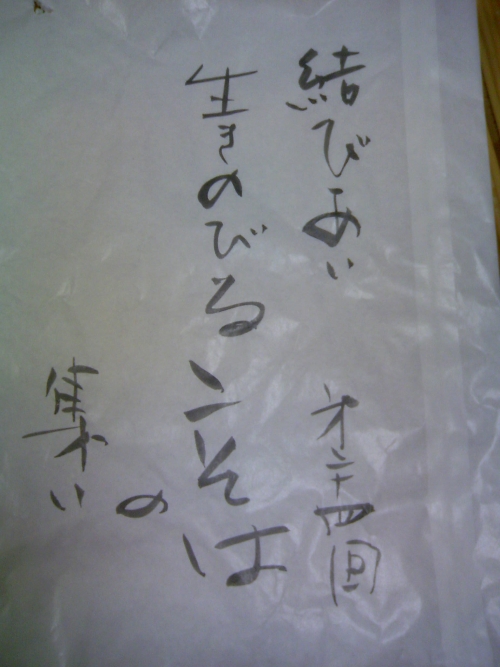 結びあい
才二十四回
生きのびるこそは
の
集い